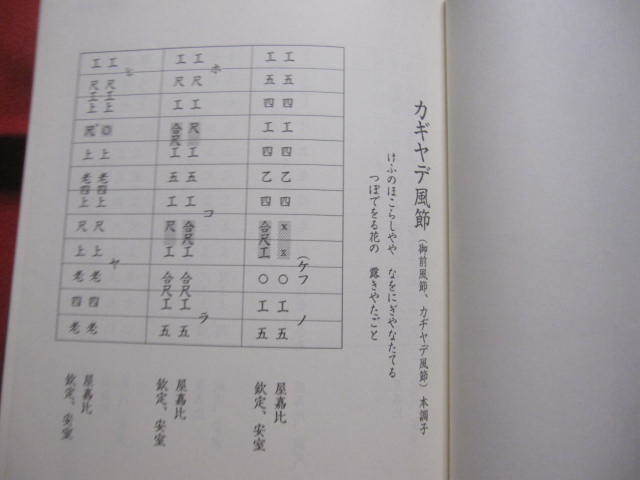 カギヤデ風節（御前風節、カヂヤデ風節）本調子
けふのほこらしやや なをにぎやなたてる
つぼでをる花の 露きやたごと
（ケフ ノ
工五四工四乙四xx○工五 屋嘉比
工五四工四乙四合尺工○工五 欽定、安室
ホ コ ラ
工尺工尺工五工合尺工合尺工五 屋嘉比
工尺工合尺工五工尺工合尺工五 欽定、安室
ヤ
工尺工上◎上老四上尺上老四老 屋嘉比
工尺工上尺上老四上尺上老四老 欽定、安室